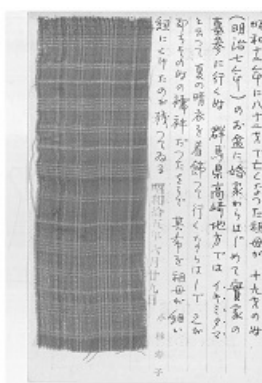 昭和十二年に八十二才で亡くなった祖母が十九才の
(明治七年)のお盆に婚家からはじめて實家の
墓参に行くのに群馬県高崎地方ではイキミタマ
と云って夏の晴衣を着飾って行くならはしで之が
その時の襦袢だったそうで其布を祖母が細い
紐にくけたのが残ってゐる